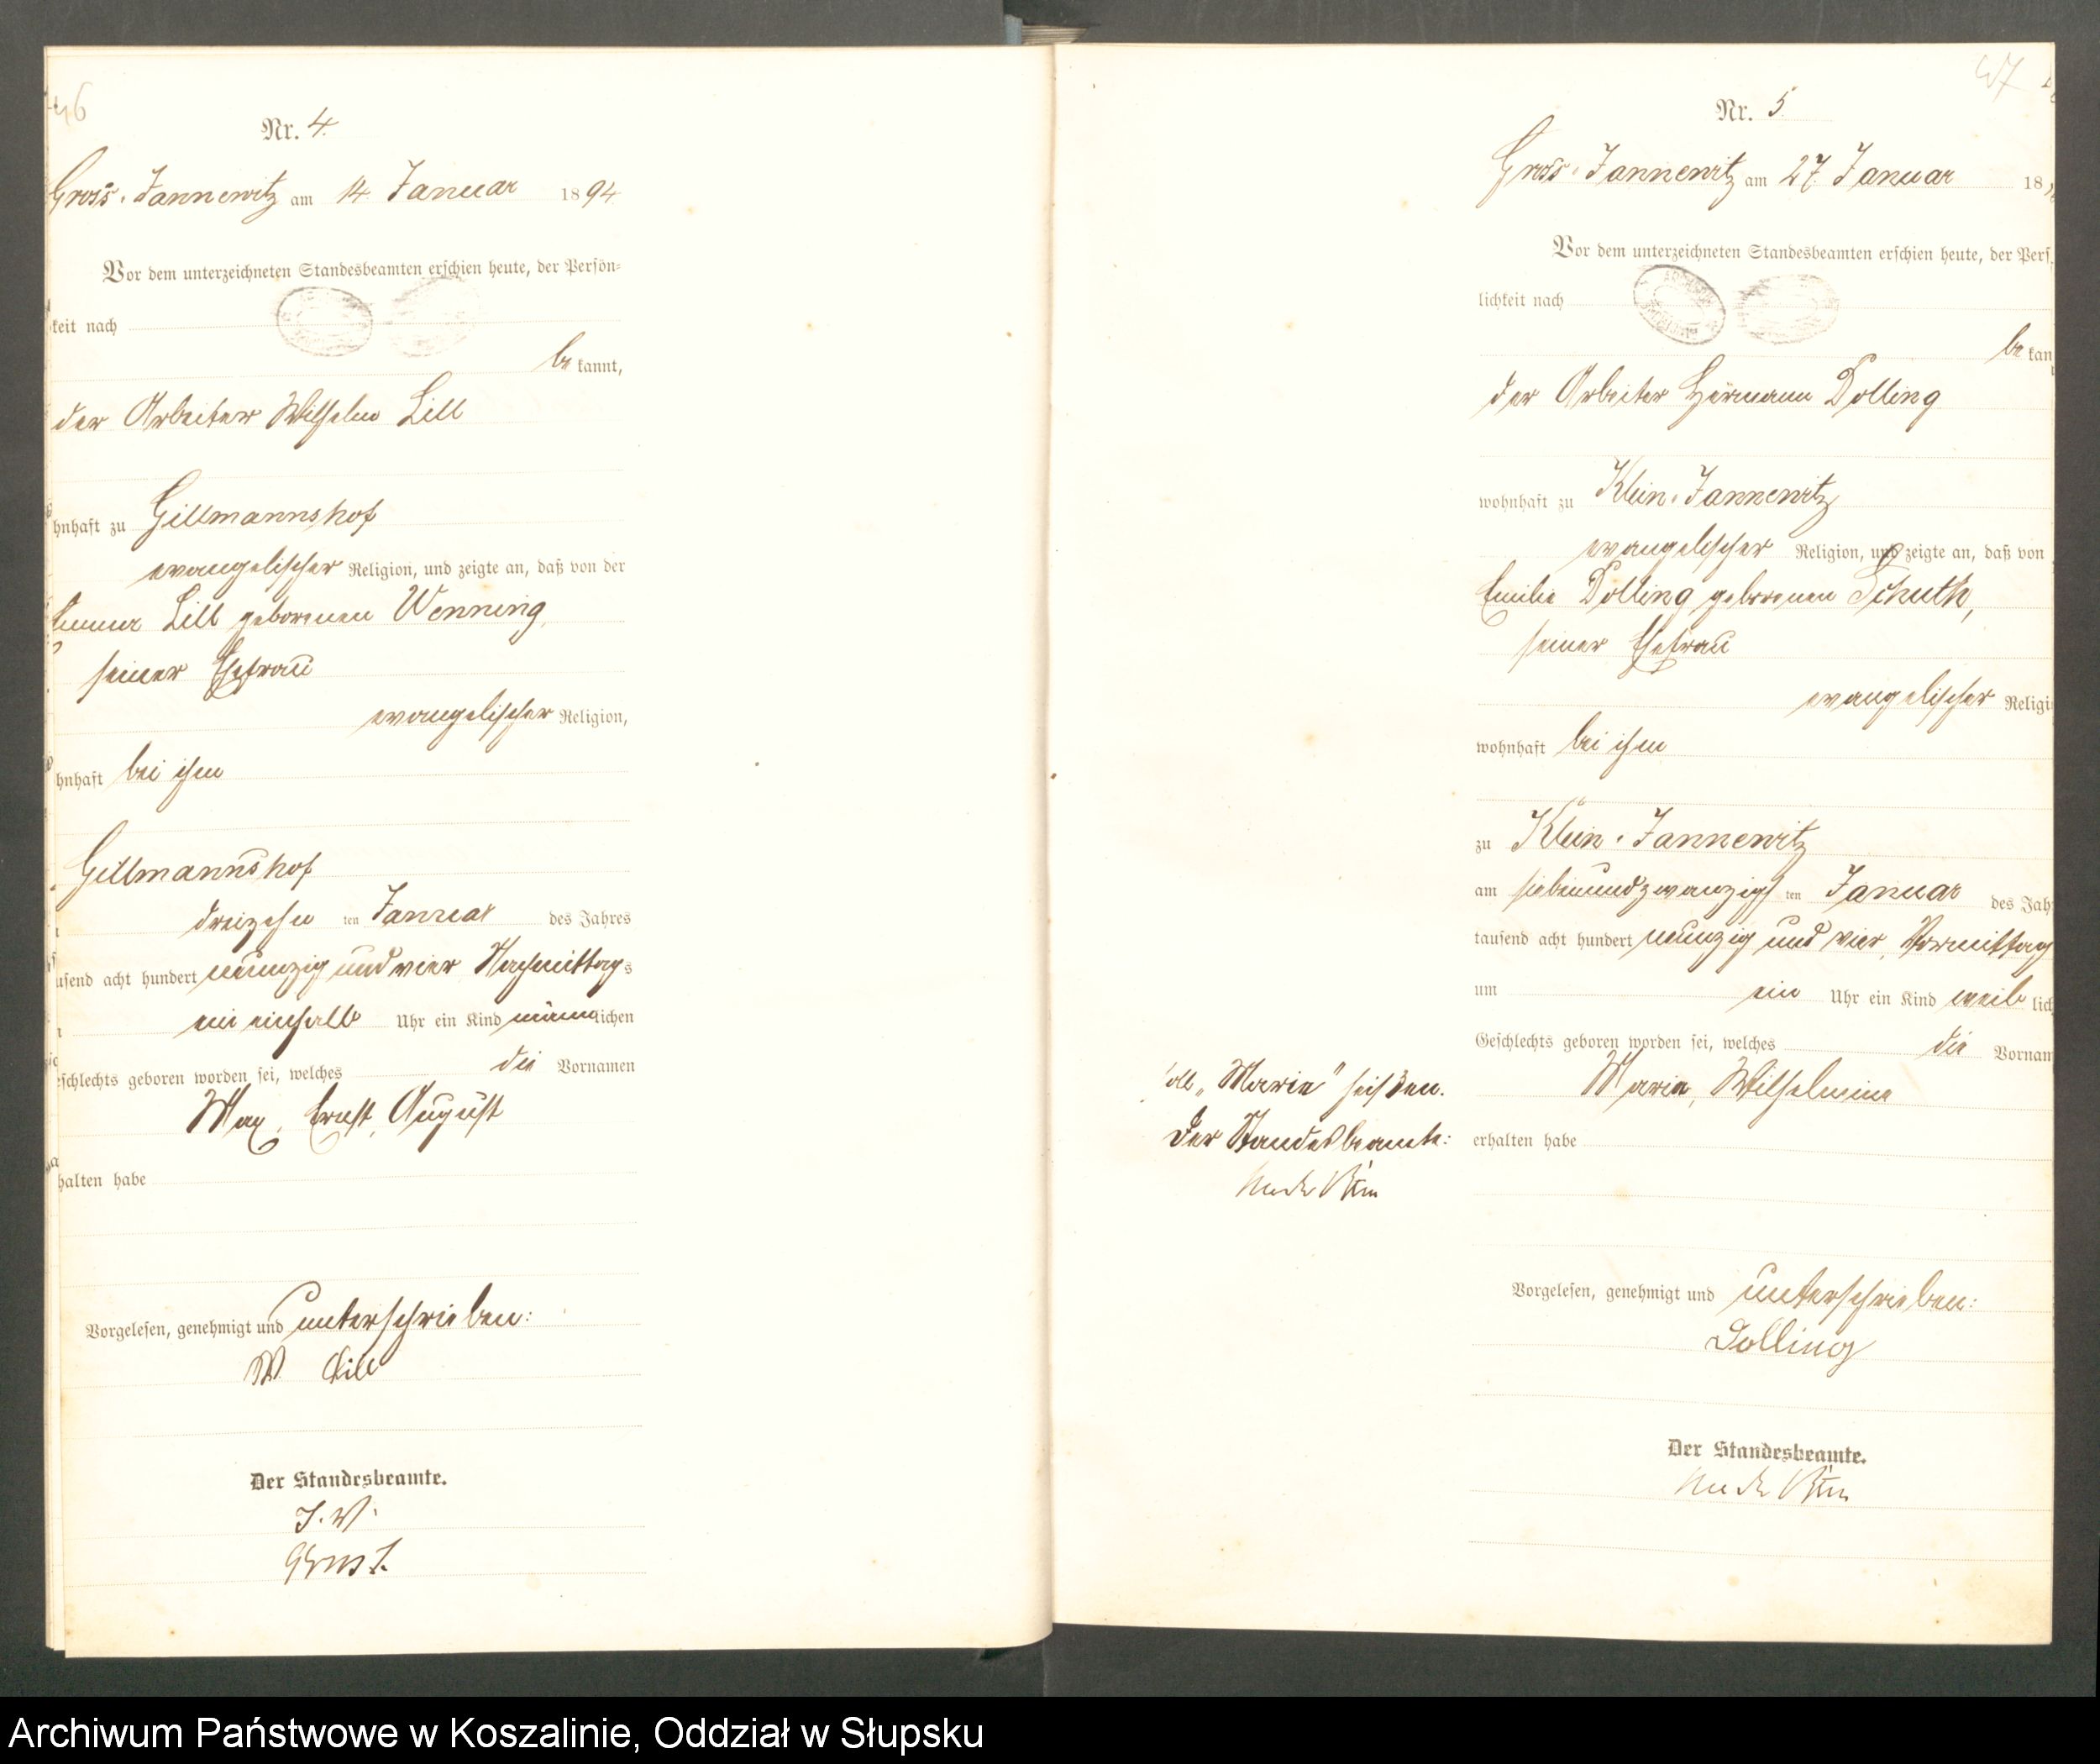 46
Nr. 4.
Gross-Jannewitz am 14 Januar 1894
Vor dem unterzeichneten Standesbeamten erschien heute, der Persön-
keit nach
bekannt,
der Arbeiter Wilhelm Lill
hnhaft zu Gillmannshof
evangelischer Religion, und zeigte an, daß von der
Lill geborenen Wenning,
seiner Ehefrau
evangelischer Religion,
hnhaft bei ihm
Gillmannshof
dreizehn ten Januar des Jahres
usend acht hundert neunzig und vier Nachmittags
ein einhalb Uhr ein Kind männlichen
eschlechts geboren worden sei, welches die Vornamen
Max, Ernst, August
halten habe
Vorgelesen, genehmigt und unterschrieben:
W Lill
Der Standesbeamte.
J. W.
47
Nr. 5.
Gross-Jannewitz am 27. Januar 18
Vor dem unterzeichneten Standesbeamten erschien heute, der Pers
lichkeit nach
bekan
der Arbeiter Hermann Dolling
wohnhaft zu Klein-Jannewitz
evangelischer Religion, und zeigte an, daß von
Emilie Dolling geborenen Schuth,
seiner Ehefrau
evangelischer Religi
wohnhaft bei ihm
zu Klein-Jannewitz
am siebenundzwanzigsten Januar des Jah
tausend acht hundert neunzig und vier, Vormittag
um ein Uhr ein Kind weiblich
Geschlechts geboren worden sei, welches die Vornam
Marie, Wilhelmine
erhalten habe
soll „Marie" heißen.
Der Standesbeamte:
Vorgelesen, genehmigt und unterschrieben:
Dolling
Der Standesbeamte.
Archiwum Państwowe w Koszalinie, Oddział w Słupsku